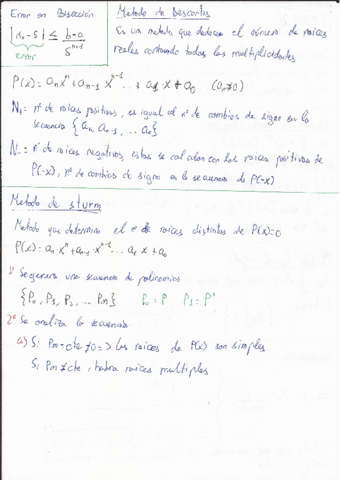 Error en Bisección
|xn - S| ≤ b-a / 5^(n+1)
error
Metodo de Descartes
Es un metodo que determina el número de raices
reales contando todas las multiplicidades
P(x) = an x^n + an-1 x^(n-1) ... + a1 x + a0 (an ≠ 0)
N+ = nº de raices positivas, es igual al nº de cambios de signo en la
secuencia {an, an-1, ... a0}
N- = nº de raices negativas, estas se calculan con las raices positivas de
P(-x), nº de cambios de signo en la secuencia de P(-x)
Metodo de Sturm
Metodo que determina el nº de raices distintas de P(x)=0
P(x) = an·x^n + an-1·x^(n-1) ... a1·x + a0
1º Se genera una secuencia de polinomios
{P0, P1, P2, ... Pm} P0 = P P1 = P'
2º Se analiza la secuencia
a) Si Pm = cte ≠ 0 => Las raices de P(x) son simples
Si Pm ≠ cte, habra raices multiples